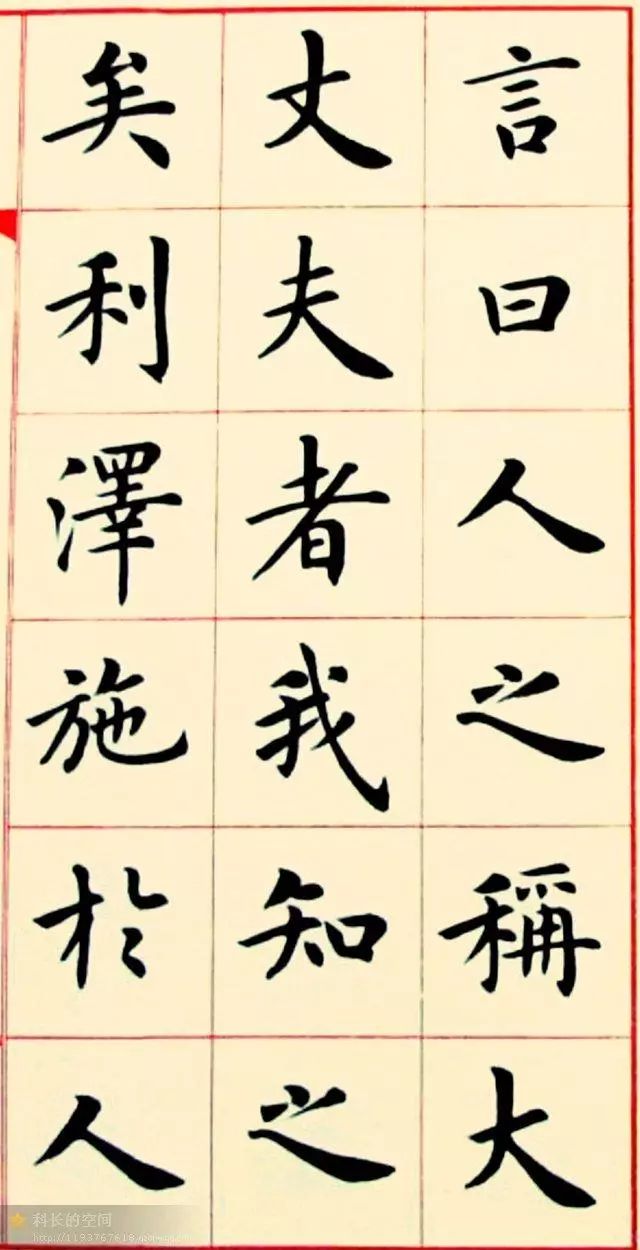 言曰人之稱大
丈夫者我知之
矣利澤施於人
科长的空间